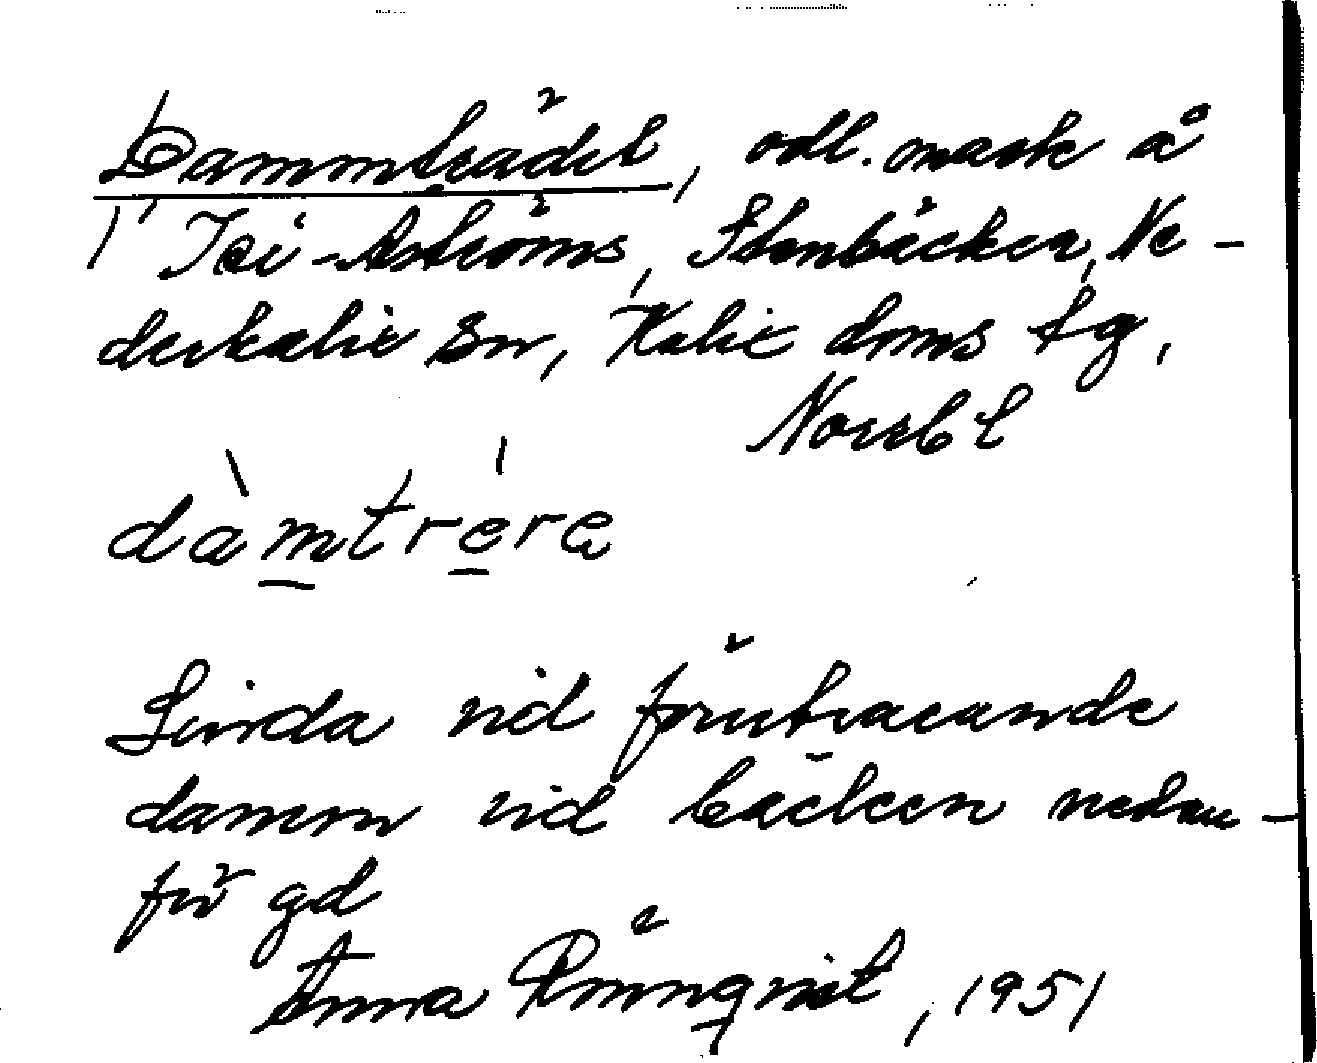 Dammträdet, odl. mark å
Isi-Aströms, Stenbäcken, Ne-
derkalix sn, Kalix doms tg,
Norrb l
dàmtrére
Linda vid förutvarande
damm vid bäcken nedan-
för gd
Anna Rönnqvist, 1951